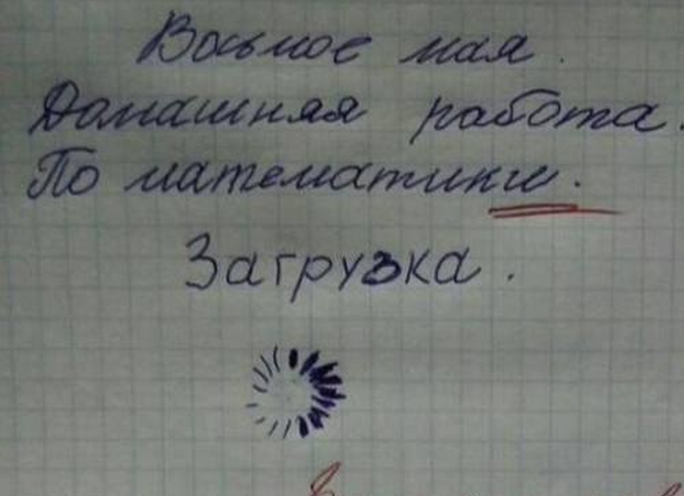 Восьмое мая.
Домашняя работа.
По математики.
Загрузка.